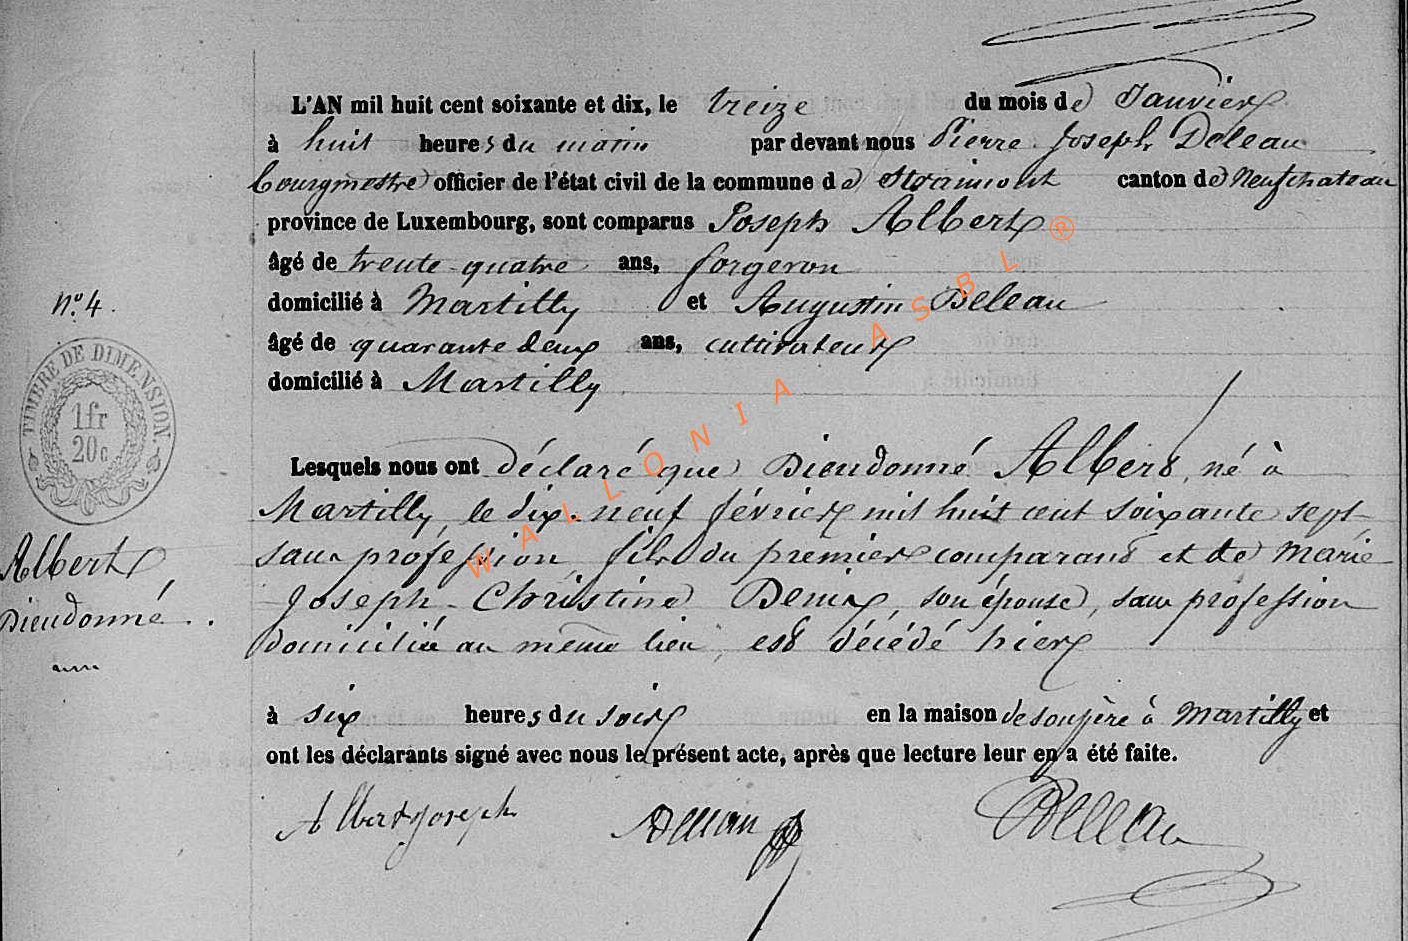 L'AN mil huit cent soixante et dix, le treize du mois de Janvier
à huit heures du matin par devant nous Pierre Joseph Deleau
bourgmestre officier de l'état civil de la commune de Straimont canton de Neufchateau
province de Luxembourg, sont comparus Joseph Albert
âgé de trente-quatre ans, forgeron
domicilié à Martilly et Augustin Deleau
âgé de quarante deux ans, cultivateur
domicilié à Martilly
N° 4.
TIMBRE DE DIMENSION.
1fr
20c
Albert
Dieudonné
Lesquels nous ont déclaré que Dieudonné Albert, né à
Martilly, le dix-neuf février mil huit cent soixante sept
sans profession, fils du premier comparant et de Marie
Joseph-Christine Denis, son épouse, sans profession
domiciliée au même lieu, est décédé hier
à six heures du soir en la maison de son père à Martilly et
ont les déclarants signé avec nous le présent acte, après que lecture leur en a été faite.
Albert Joseph Deleau Deleau
WALLONIA ASBL ®